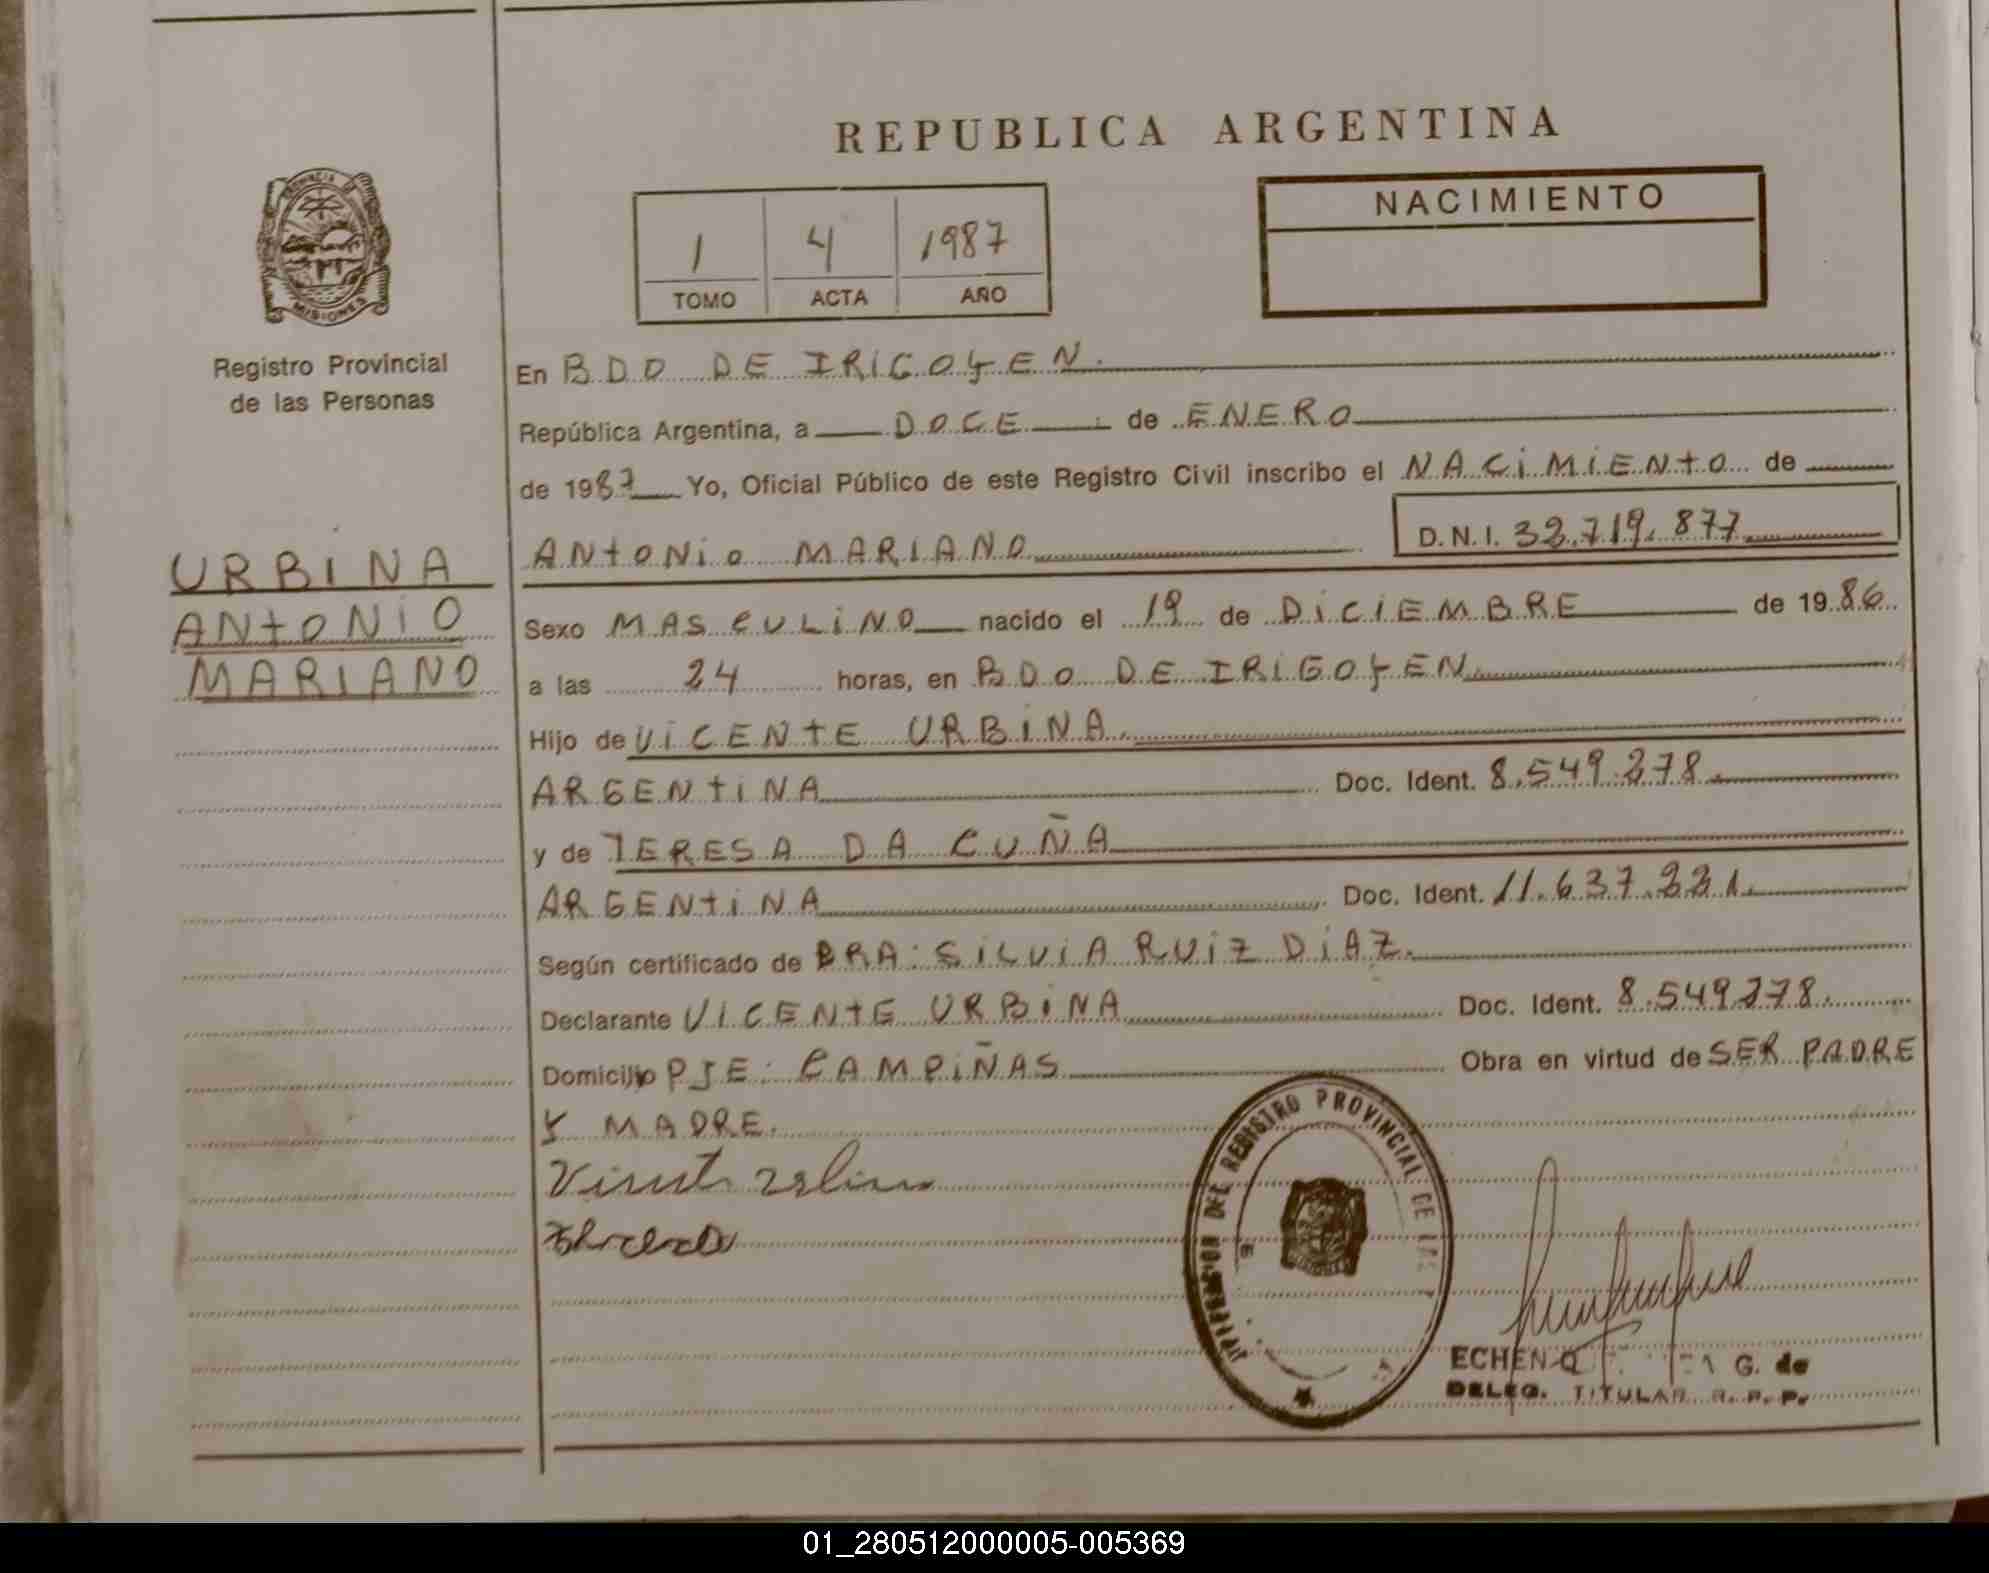 REPUBLICA ARGENTINA
PROVINCIA D
MISIONES
Registro Provincial
de las Personas
1 4 1987
TOMO ACTA AÑO
NACIMIENTO
En BDO DE IRIGOYEN.
República Argentina, a DOCE de ENERO
de 1987 Yo, Oficial Público de este Registro Civil inscribo el NACIMIENTO de
ANTONIO MARIANO D.N.I. 32.719.877
URBINA
ANTONIO
MARIANO
Sexo MASCULINO nacido el 19 de DICIEMBRE de 1986
a las 24 horas, en BDO DE IRIGOYEN
Hijo de VICENTE URBINA
ARGENTINA Doc. Ident. 8.549.278.
y de TERESA DA CUÑA
ARGENTINA Doc. Ident. 11.637.221.
Según certificado de DRA: SILVIA RUIZ DIAZ.
Declarante VICENTE URBINA Doc. Ident. 8.549278.
Domicilio PJE: CAMPIÑAS Obra en virtud de SER PADRE
Y MADRE.
DEL REGISTRO PROVINCIAL DE LAS
G. de
DELEG. TITULAR R. P. P.
01_280512000005-005369